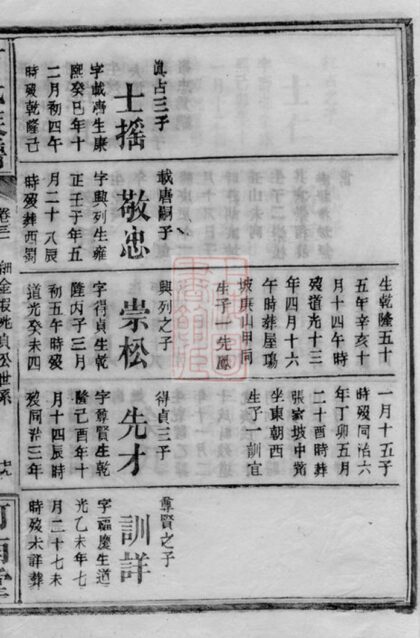 眞占三子
士摇
字載唐生康
熙癸巳年十
二月初四午
時殁乾隆己
載唐嗣子
敬忠
字興列生雍
正壬子年五
月二十八辰
時殁葬西
生乾隆五十
五年辛亥十
月十四午時
殁道光十三
年四月十六
午時葬屋塲
坡庚山甲向
生子一先
興列之子
崇松
字得貞生乾
隆丙子三月
初五午時殁
道光癸未四
一月十五子
時殁同治六
年丁卯五月
二十酉時葬
張家坡中
坐東朝西
生子一訓宣
得貞三子
先才
字尊賢生乾
隆己酉年十
月十四辰時
殁同治三年
尊賢之子
訓詳
字福慶生道
光乙未年七
月二十七未
時殁未詳葬
卷三
公世系